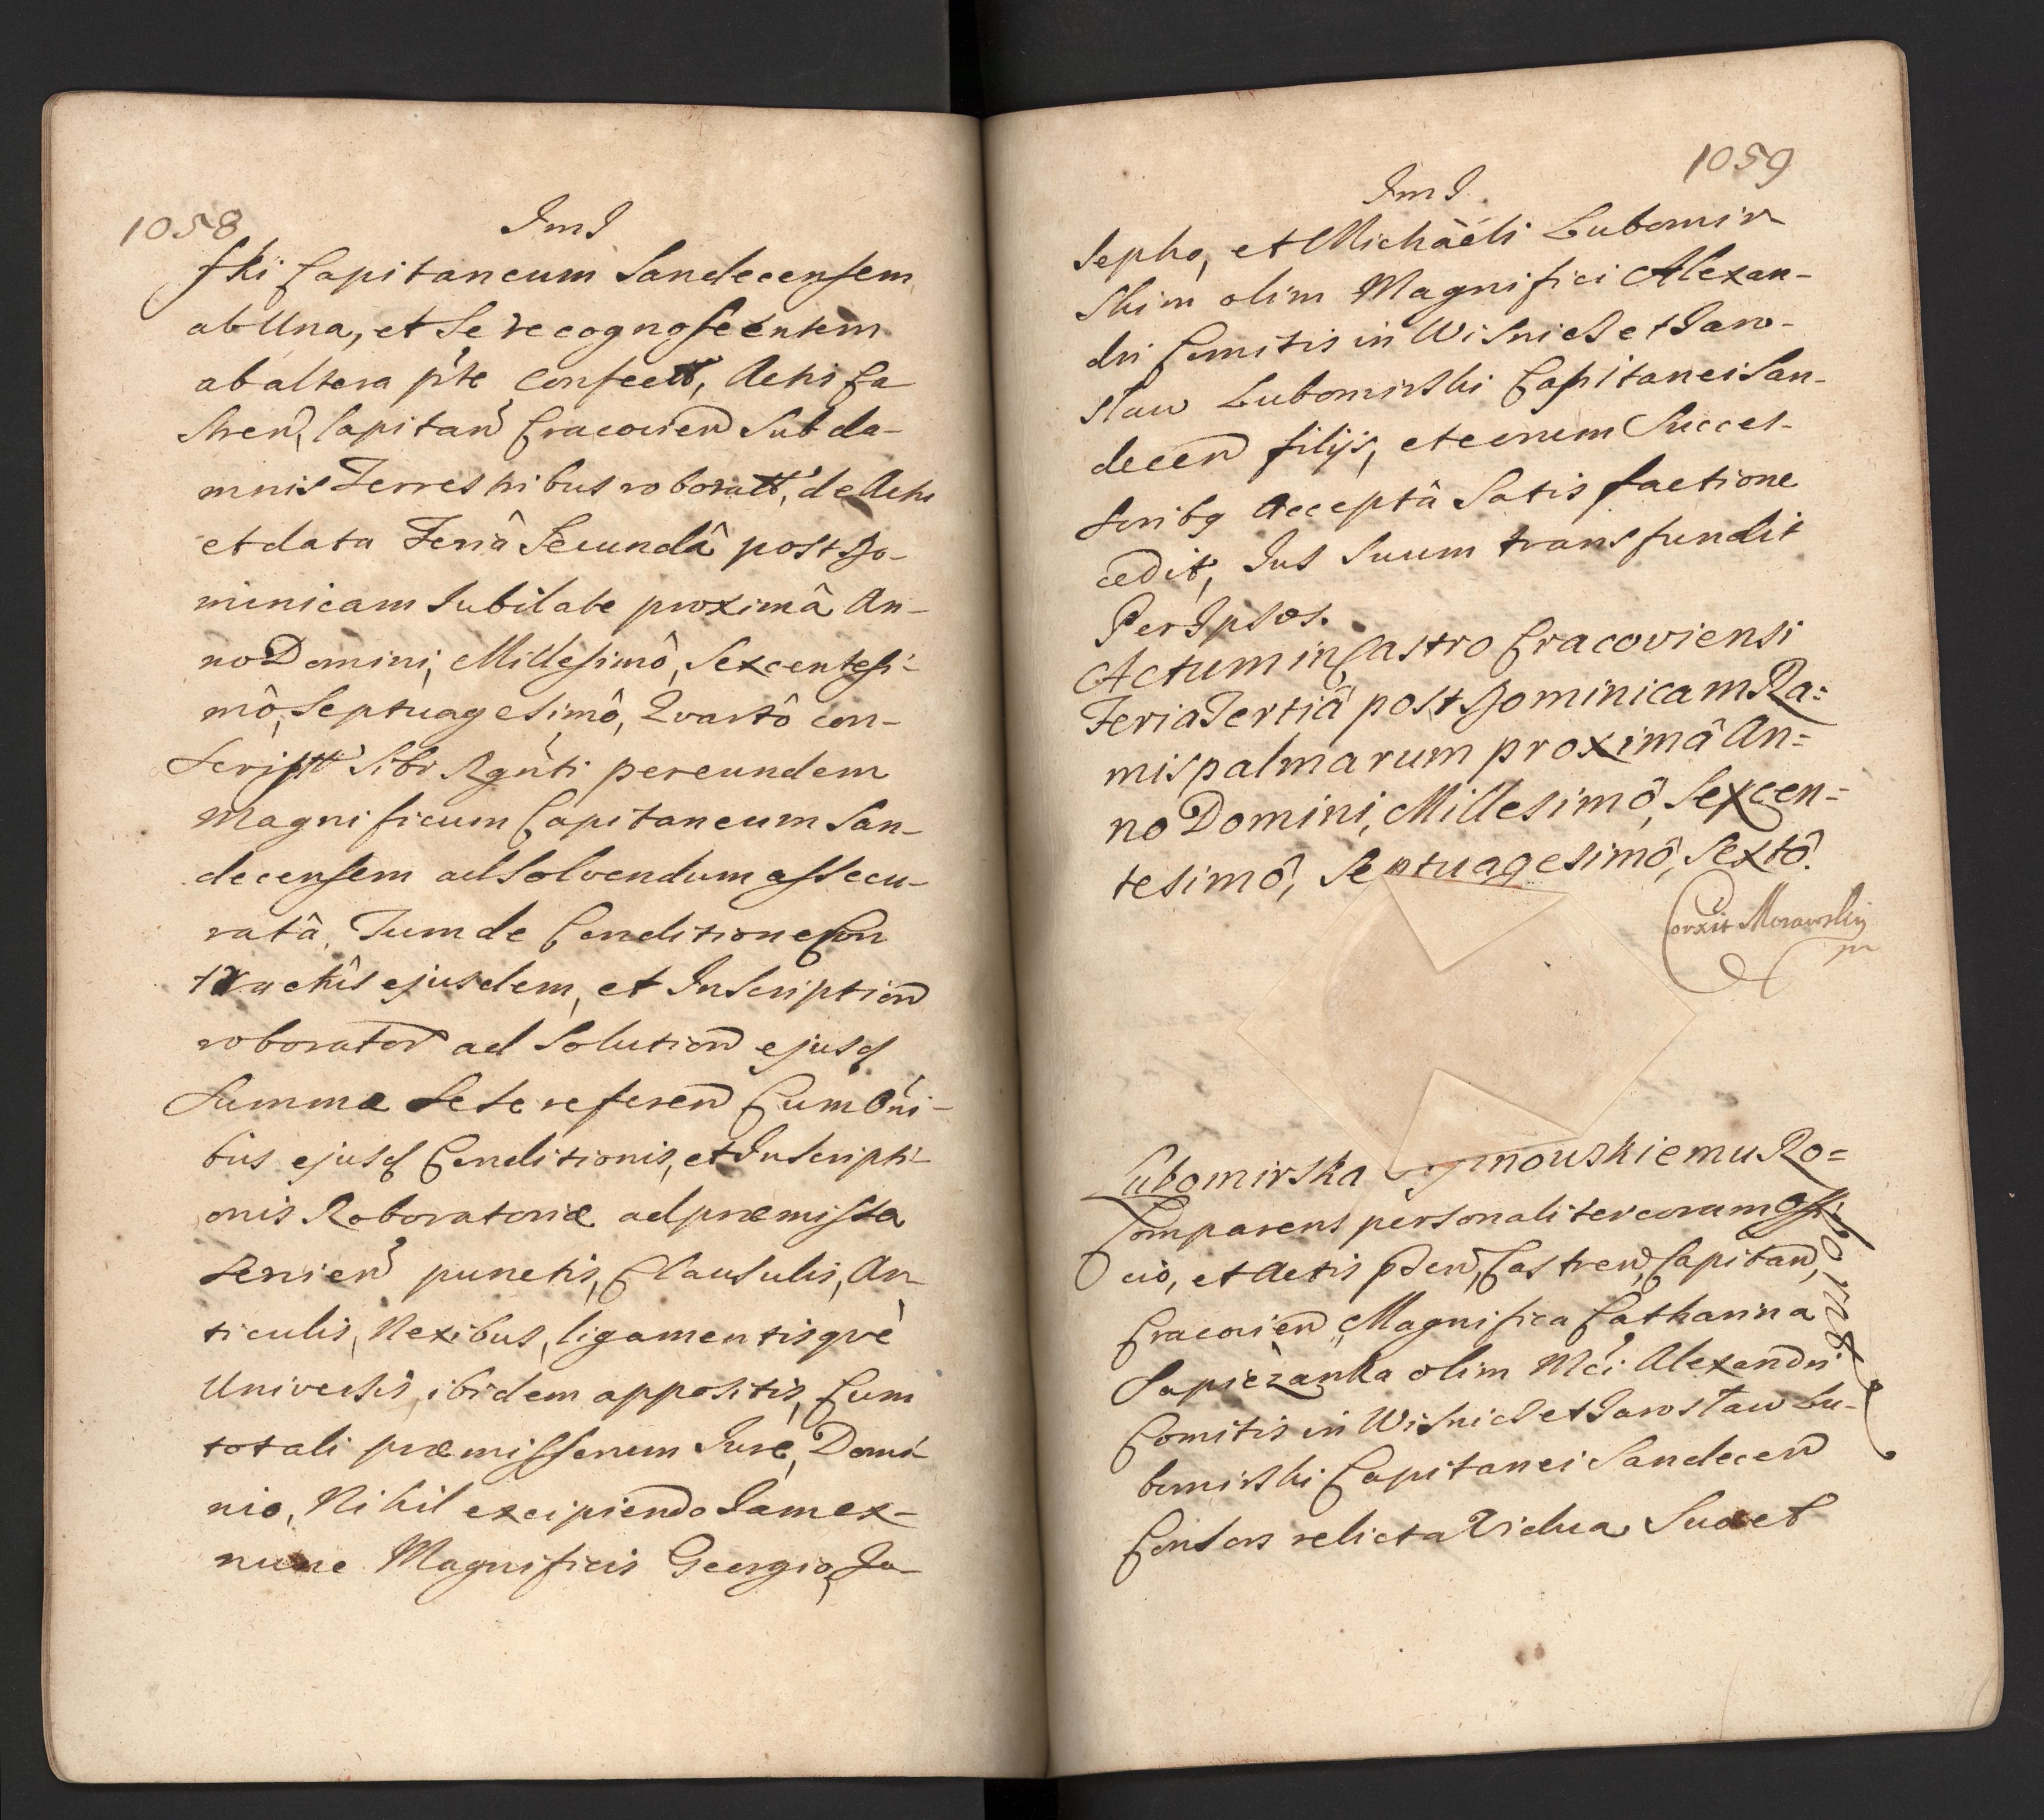 1058
JmJ
ski Capitaneum Sandecensem
ab Una, et Se recognoscentem
ab altera pte confectt, Actis Ca
stren, Capitan Cracovien Sub da-
mnis Terrestribus roboratt, de Actu
et data Feriâ Secundâ post Do-
minicam Iubilate proximâ An-
no Domini, Millesimô, Sexcentesi-
mô, Septuagesimô, Qvartô con-
scriptt Sibi Rgnti per eundem
Magnificum Capitaneum San-
decensem ad Solvendum assecu-
ratâ, Tum de Conditione Con
tractûs ejusdem, et Inscription
roborator ad Solution ejusd
Summæ Sese referen Cum Oni-
bus ejusd Conditionis, et Inscripti-
onis Roboratoriæ ad præmissa
Servien punctis, Clausulis, Ar
ticulis, Nexibus, ligamentisqve
Universis, ibidem appositis, Cum
totali præmissorum Iure, Domi-
nio, Nihil excipiendo Iam ex-
nunc Magnificis Georgio, Io-
1059
JmJ
sepho, et Michaëli Lubomir
skim olim Magnifici Alexan-
dri Comitis in Wisnicz et Jaro-
slaw Lubomirski Capitanei San-
decen filijs, et eorum Succes-
soribq Acceptâ Satisfactione
cedit, Ius Suum transfundit
Per Ipsos.
Actum in Castro Cracoviensi
Feria Tertiâ post Dominicam Ra=
mis palmarum proximâ An=
no Domini, Millesimô, Sexcen=
tesimô, Septuagesimô, Sextô.
Corxit Morawskij
mp
Lubomirska mouskiemu Ro=
borat
Comparens personaliter coram Offi
cio, et Actis pden, Castren, Capitan,
Cracovien, Magnifica Catharina
Sapiezanka olim Mci Alexandri
Comitis in Wisnicz et Jaroslaw Lu-
bomirski Capitanei Sandecen
Consors relicta Vidua Sua et